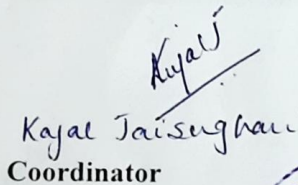 Kajal
Kajal Jaisinghani
Coordinator